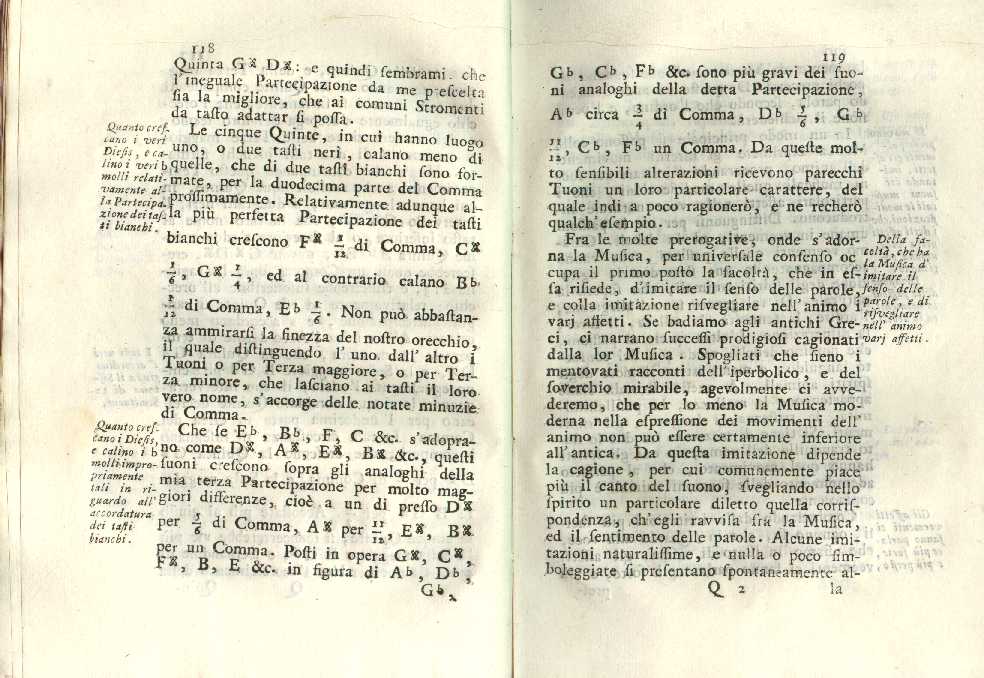 118
Quinta G𝄪 D𝄪: e quindi sembrami. che
l'ineguale Partecipazione da me prescelta
sia la migliore, che ai comuni Stromenti
da tasto adattar si possa.
Quanto cres-
cano i veri
Diesis, e ca-
lino i veri b
molli relati-
vamente al-
la Partecipa-
zione dei tas-
ti bianchi.
Le cinque Quinte, in cui hanno luogo
uno, o due tasti neri, calano meno di
quelle, che di due tasti bianchi sono for-
mate, per la duodecima parte del Comma
prossimamente. Relativamente adunque al-
la più perfetta Partecipazione dei tasti
bianchi crescono F𝄪 1/12 di Comma, C𝄪
1/6, G𝄪 1/4, ed al contrario calano Bb
1/12 di Comma, Eb 1/6. Non può abbastan-
za ammirarsi la finezza del nostro orecchio,
il quale distinguendo l'uno dall'altro i
Tuoni o per Terza maggiore, o per Ter-
za minore, che lasciano ai tasti il loro
vero nome, s'accorge delle notate minuzie
di Comma.
Quanto cres-
cano i Diesis,
e calino i b
molli impro-
priamente
tali in ri-
guardo all'
accordatura
dei tasti
bianchi.
Che se Eb, Bb, F, C &c. s'adopra-
no come D𝄪, A𝄪, E𝄪, B𝄪 &c., questi
suoni crescono sopra gli analoghi della
mia terza Partecipazione per molto mag-
giori differenze, cioè a un di presso D𝄪
per 5/6 di Comma, A𝄪 per 11/12, E𝄪, B𝄪
per un Comma. Posti in opera G𝄪, C𝄪,
F𝄪, B, E &c. in figura di Ab, Db,
Gb,
119
Gb, Cb, Fb &c. sono più gravi dei suo-
ni analoghi della detta Partecipazione,
Ab circa 3/4 di Comma, Db 5/6, Gb
11/12, Cb, Fb un Comma. Da queste mol-
to sensibili alterazioni ricevono parecchi
Tuoni un loro particolare carattere, del
quale indi a poco ragionerò, e ne recherò
qualch'esempio.
Fra le molte prerogative, onde s'ador-
na la Musica, per universale consenso oc
cupa il primo posto la facoltà, che in es-
sa risiede, d'imitare il senso delle parole,
e colla imitazione risvegliare nell'animo i
varj affetti. Se badiamo agli antichi Gre-
ci, ci narrano successi prodigiosi cagionati
dalla lor Musica. Spogliati che sieno i
mentovati racconti dell'iperbolico, e del
soverchio mirabile, agevolmente ci avve-
deremo, che per lo meno la Musica mo-
derna nella espressione dei movimenti dell'
animo non può essere certamente inferiore
all'antica. Da questa imitazione dipende
la cagione, per cui comunemente piace
più il canto del suono, svegliando nello
spirito un particolare diletto quella corris-
pondenza, ch'egli ravvisa fra la Musica,
ed il sentimento delle parole. Alcune imi-
tazioni naturalissime, e nulla o poco sim-
boleggiate si presentano spontaneamente al-
Della fa-
coltà, che ha
la Musica d'
imitare il
senso delle
parole, e di
risvegliare
nell' animo
varj affetti.
Q 2 la